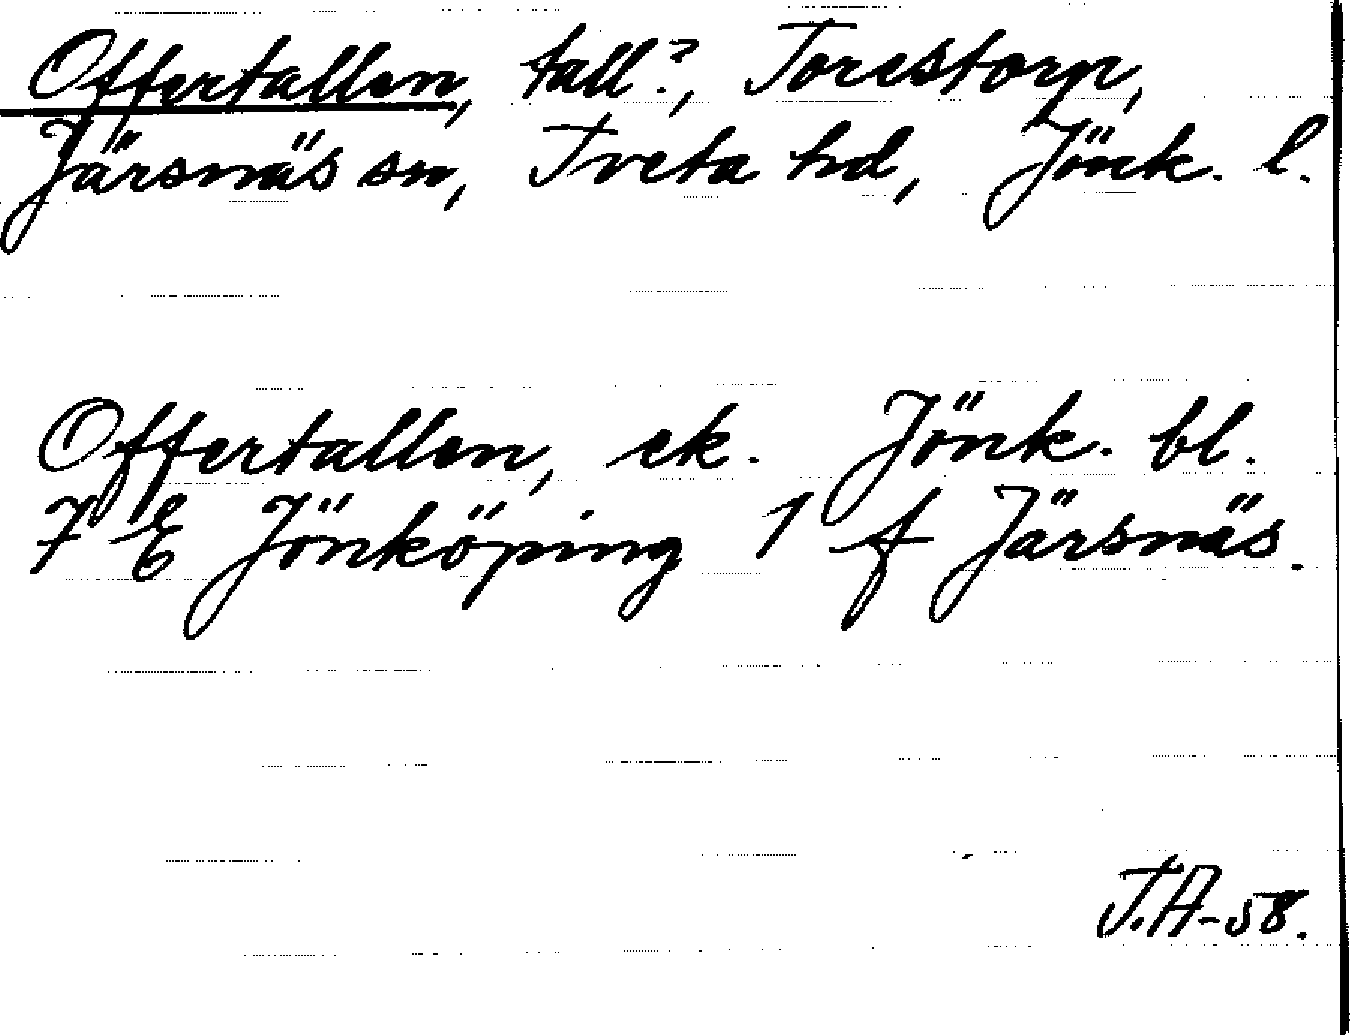 Offertallen, tall?, Torestorp,
Järsnäs sn, Tveta hd, Jönk. l.
Offertallen, ek. Jönk. bl.
7 E Jönköping 1 f Järsnäs.
T.A-58.